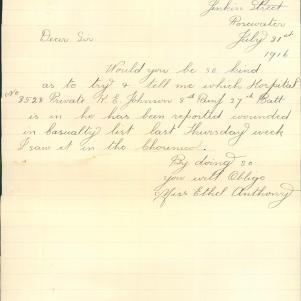 Jenkin Street
Rosewater
July 31st
1916
Dear Sir
Would you be so kind
as to try & tell me which Hospital
No 3528 Private K. E. Johnson 8th Reinf 27th Batt
is in he has been reported wounded
in casualty list last Thursday week
I saw it in the Chronicle.
By doing so
you will Oblige
Miss Ethel Anthony